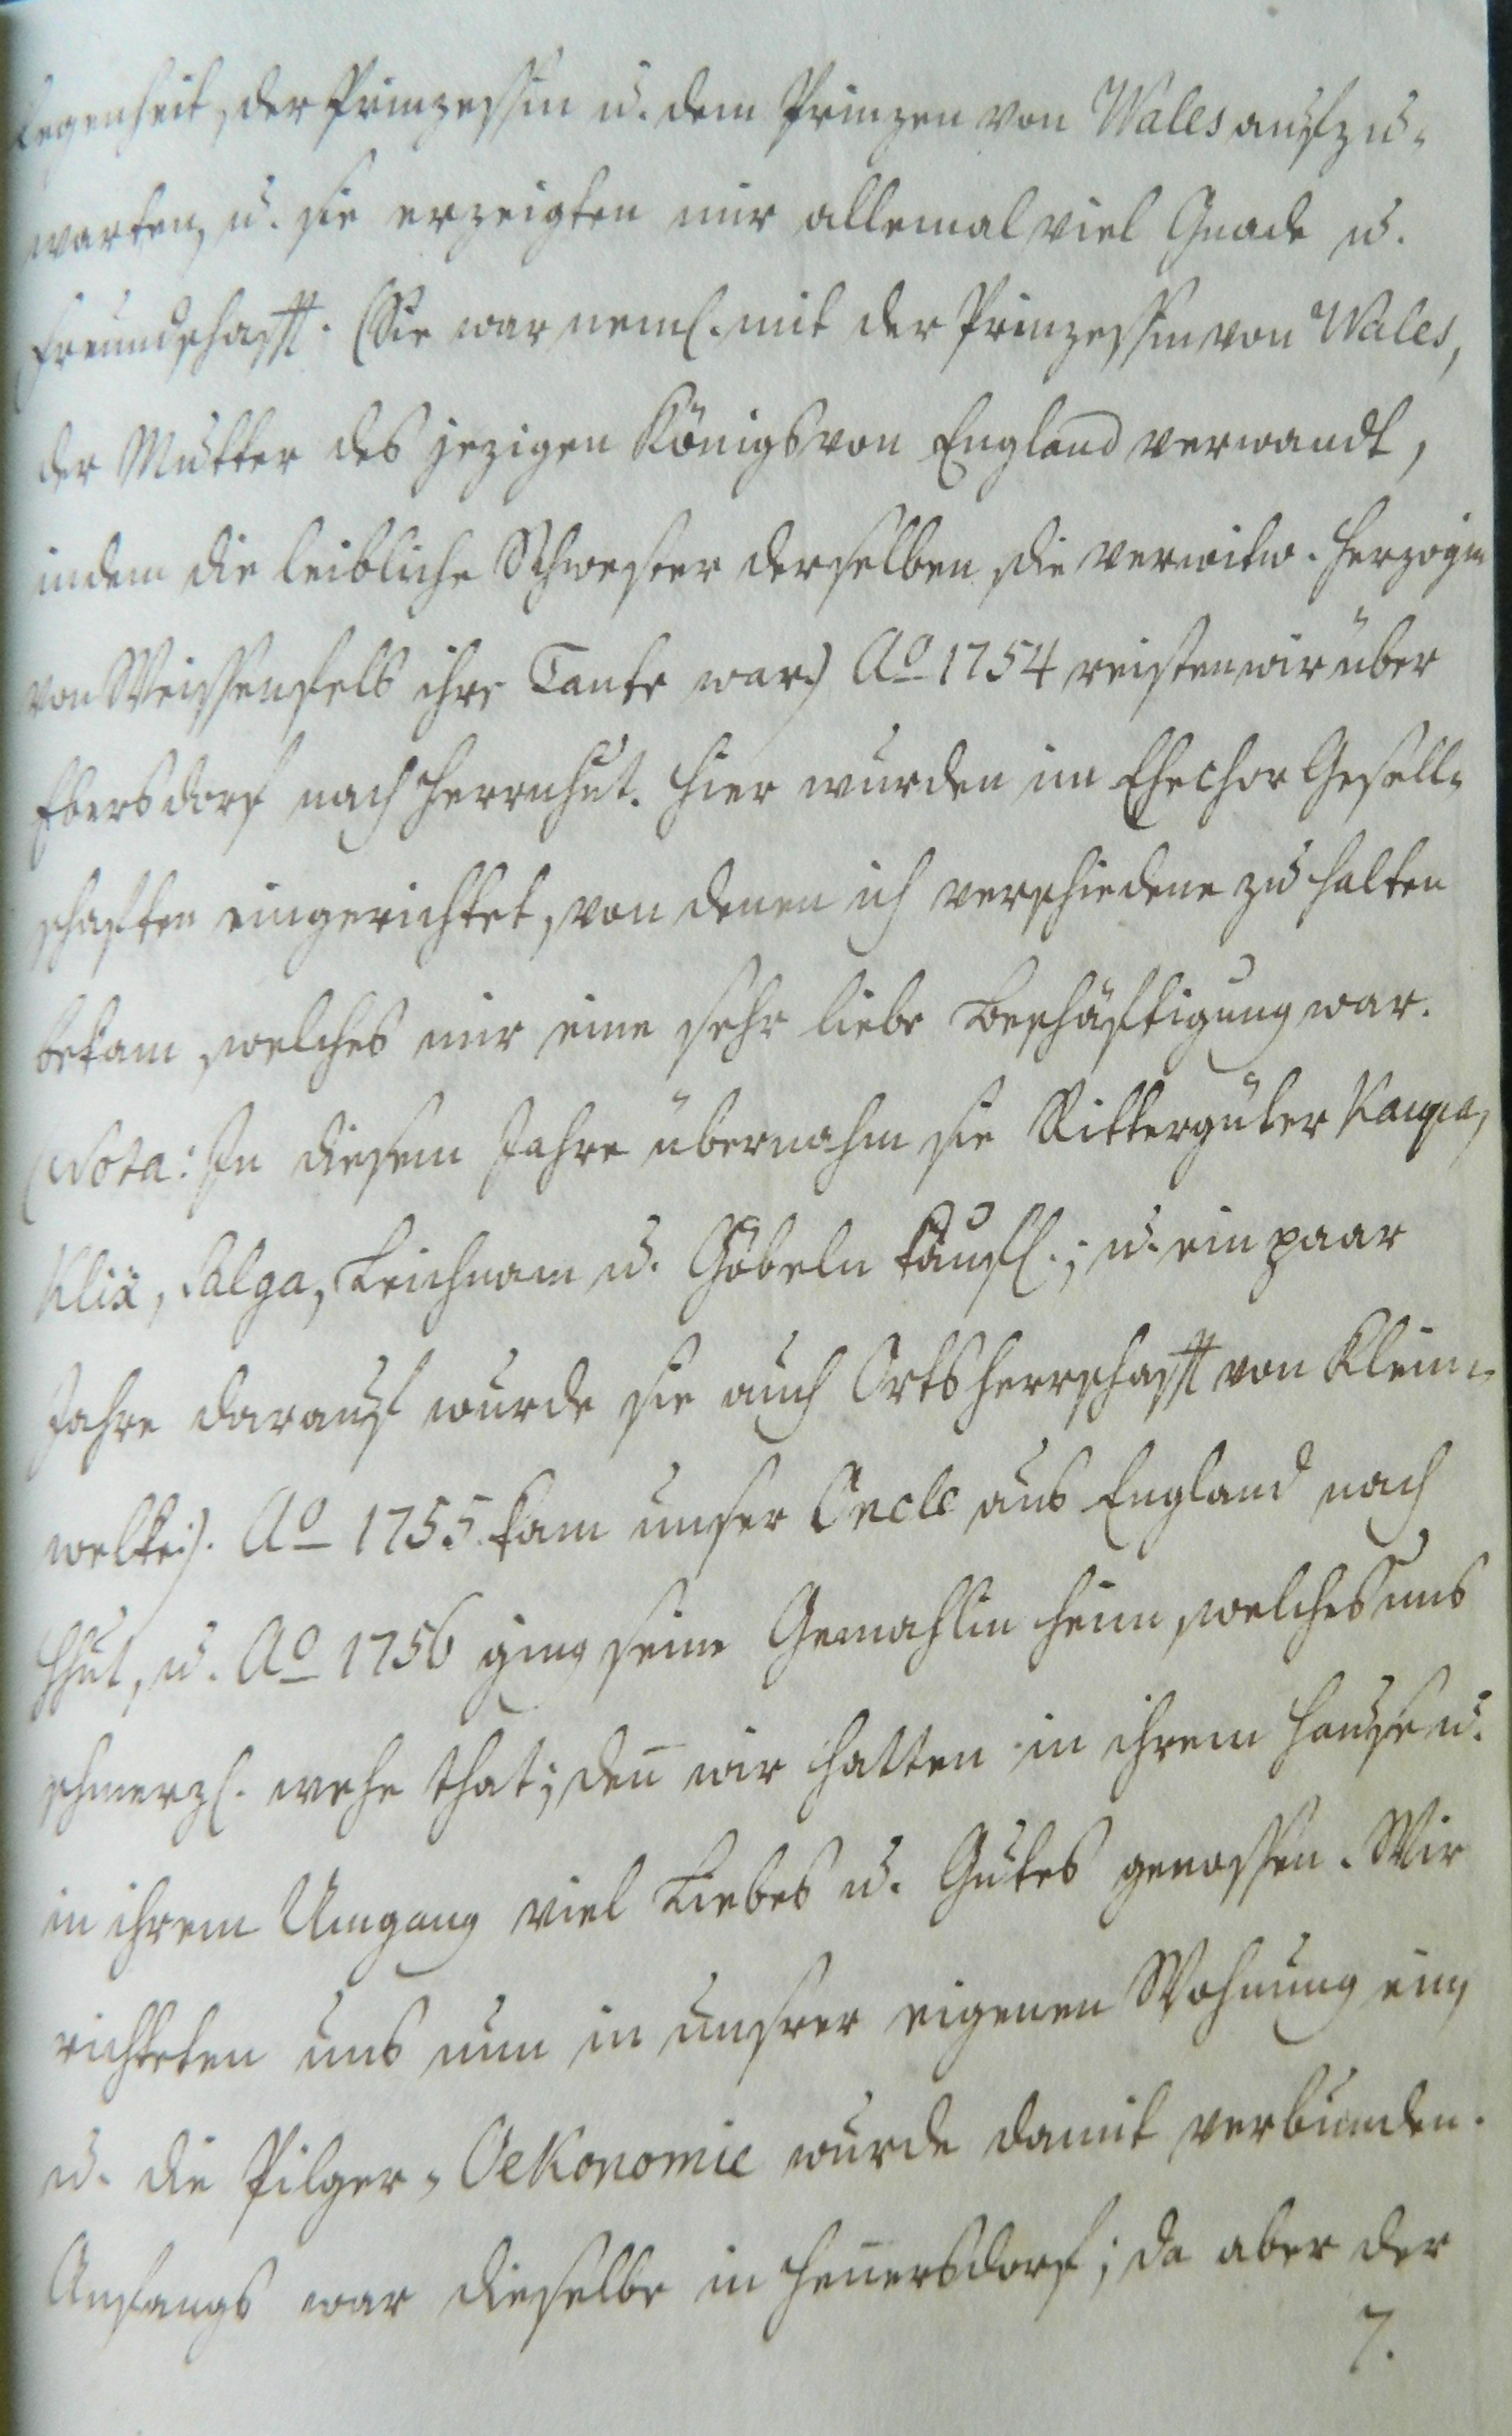 legenheit, der Prinzessin u. dem Prinzen von Wales aufzu-
warten, u. sie erzeigten mir allemal viel Gnade u.
Freundschafft. (Sie war neml. mit der Prinzessin von Wales,
der Mutter des jezigen Königs von England verwandt,
indem die leibliche Schwester derselben, die verwitw. Herzogin
von Weissenfels ihre Tante war.) Ao 1754 reisten wir über
Ebersdorf nach Herrnhut. Hier wurden im Ehechor Gesell-
schaften eingerichtet, von denen ich verschiedene zu halten
bekam, welches mir eine sehr liebe Beschäftigung war.
(Nota: In diesem Jahre übernahm sie Rittergüter Kaupa,
Klix, Salga, Leichnam u. Göbeln käufl.; u. ein paar
Jahre darauf wurde sie auch Ortsherrschafft von Klein-
welke:). Ao 1755 kam unser Oncle aus England nach
Hhut, u. Ao 1756 ging seine Gemahlin heim, welches uns
schmerzl. wehe that; den̄ wir hatten in ihrem Hause u.
in ihrem Umgang viel Liebes u. Gutes genossen. Wir
richteten uns nun in unsrer eigenen Wohnung ein,
u. die Pilger-Oekonomie wurde damit verbunden.
Anfangs war dieselbe in Hen̄ersdorf; da aber der
7.